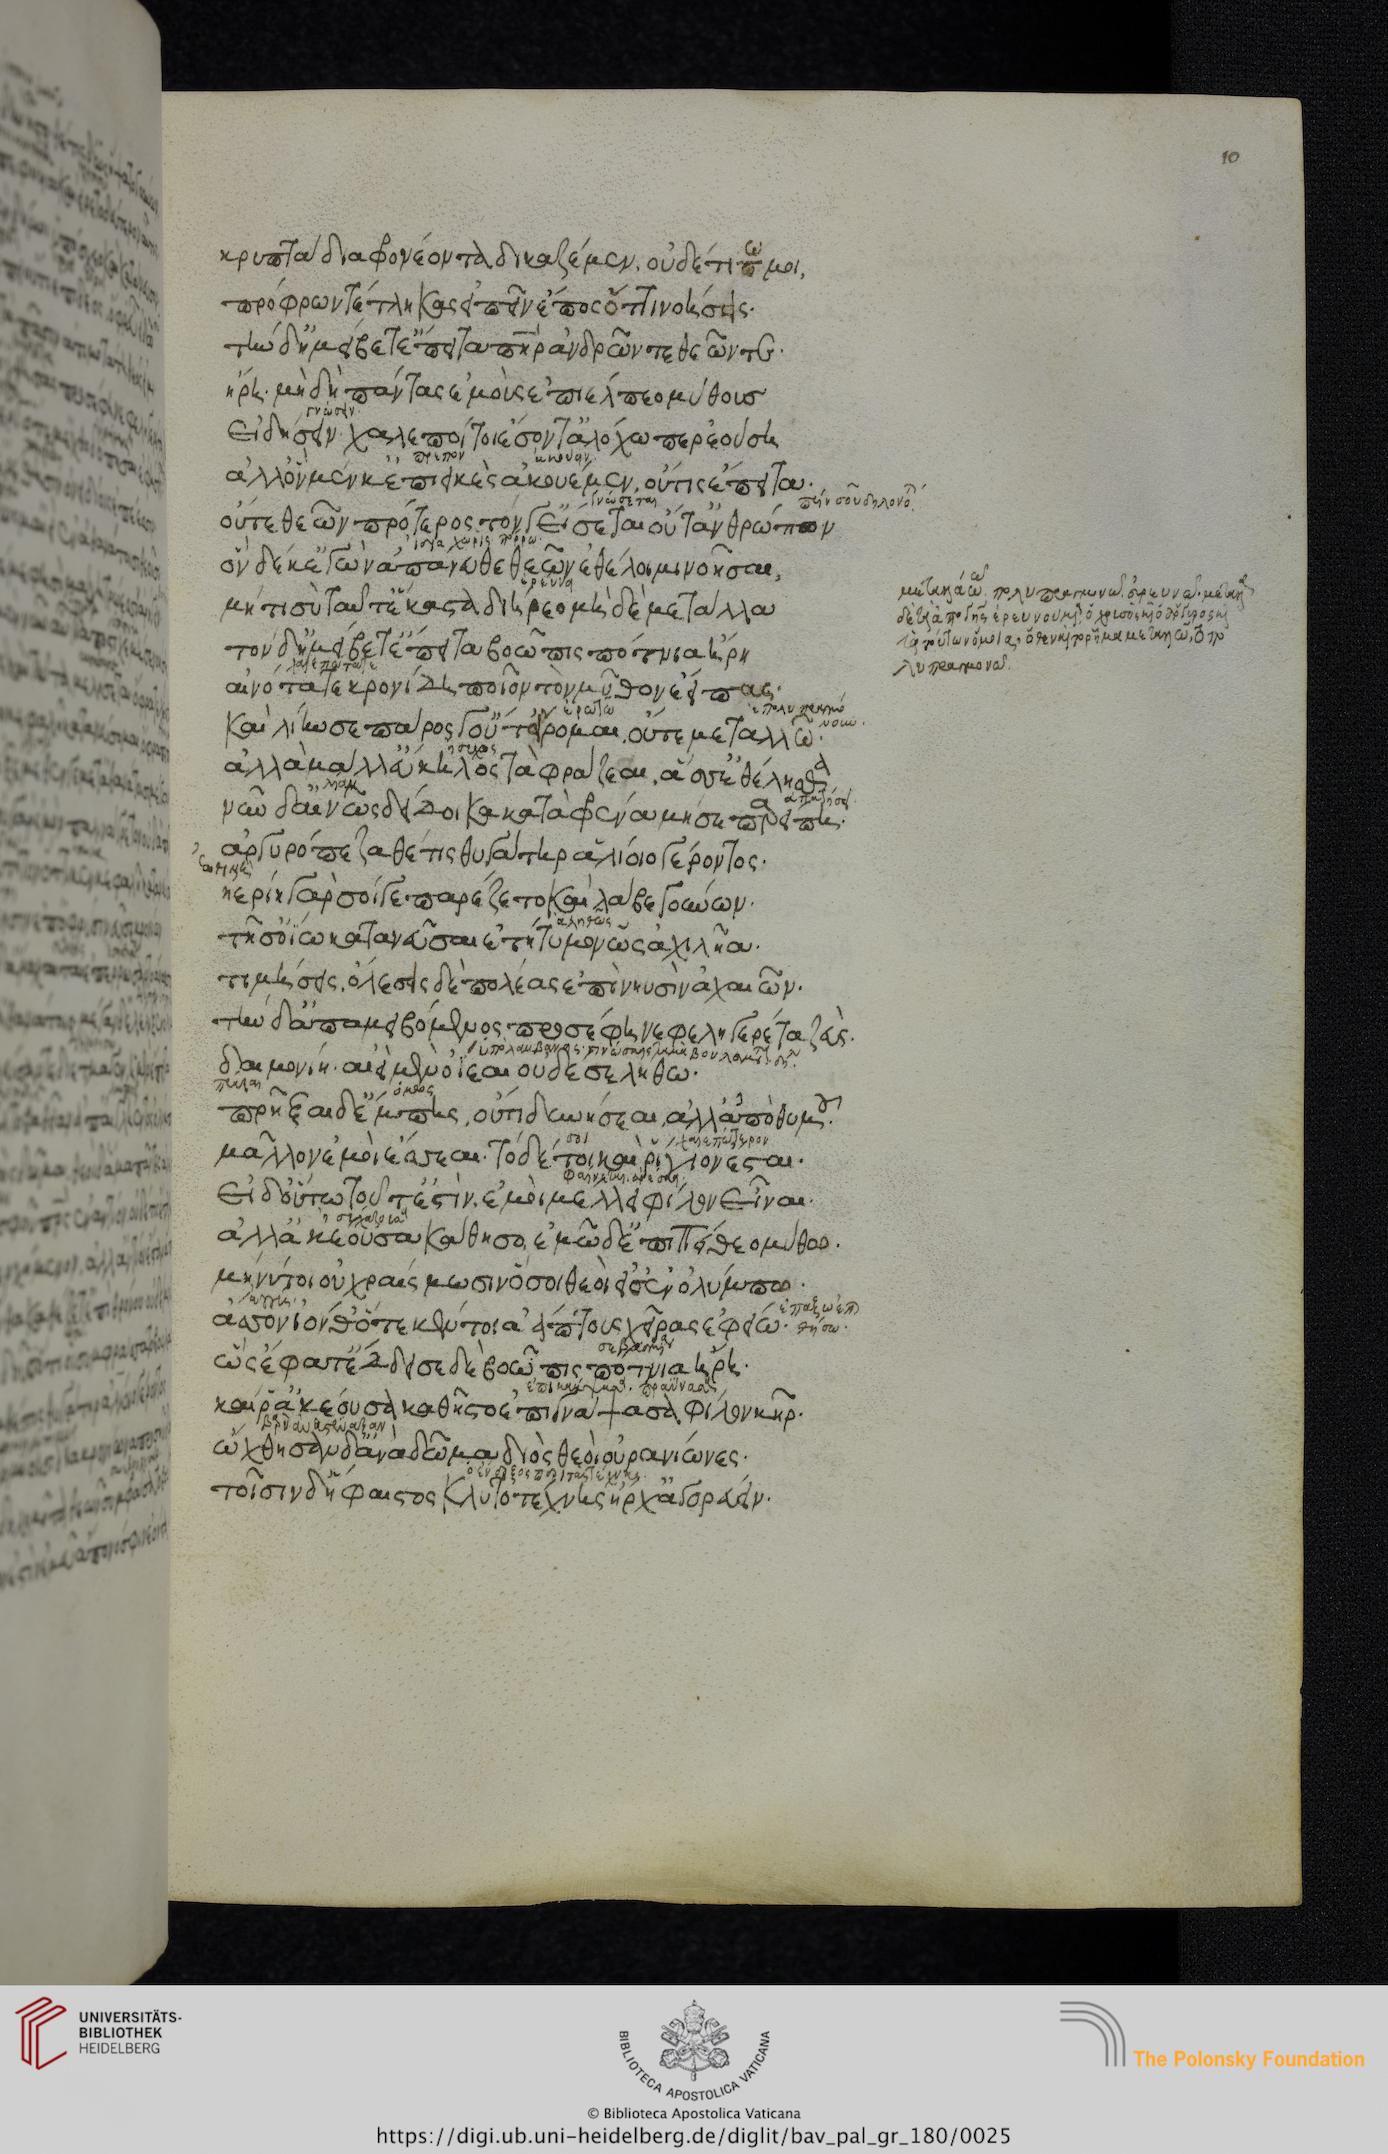 10
κρυπτὰ διαφρονέοντα δικαζέμεν. οὐδέ τι πω μοι,
πρόφρων τέτληκας εἰπεῖν ἔπος ὅττι νοήσῃς.
τὴν δ' ἠμείβετ' ἔπειτα πατὴρ ἀνδρῶν τε θεῶν τε.
ἥρη. μὴ δὴ πάντας ἐμοὺς ἐπιέλπεο μύθους
γνώσειν
εἰδήσειν. χαλεποί τοι ἔσοντ' ἀλόχω περ ἐούση
πρέπον ἀκούειν
ἀλλ' ὃν μέν κ' ἐπιεικὲς ἀκουέμεν, οὔτις ἔπειτα.
γνώσεται πλήν σοῦ δηλονότι
οὔτε θεῶν πρότερος τόν γ' εἴσεται οὔτ' ἀνθρώπων
χωρὶς πόρρω
ὃν δέ κ' ἐγὼν ἀπάνευθε θεῶν ἐθέλοιμι νοῆσαι,
ἐρεύνα
μή τι σὺ ταῦτα ἕκαστα διείρεο μηδὲ μετάλλα
τὸν δ' ἠμείβετ' ἔπειτα βοῶπις πότνια ἥρη
χαλεπώτατε
αἰνότατε κρονίδη ποῖον τὸν μῦθον ἔειπας.
ἐρωτῶ
καὶ λίην σε πάρος γ' οὔτ' εἴρομαι. οὔτε μεταλλῶ.
ἥσυχος
ἀλλὰ μάλ' εὔκηλος τὰ φράζεαι, ἅσσ' ἐθέλησθα
νῦν δ' αἰνῶς δείδοικα κατὰ φρένα μή σε παρείπη.
ἀργυρόπεζα θέτις θυγάτηρ ἁλίοιο γέροντος.
ἠερίη γὰρ σοί γε παρέζετο καὶ λάβε γούνων.
ἀληθῶς
τῆ σ' ὀΐω κατανεῦσαι ἐτήτυμον ὡς ἀχιλῆα.
τιμήσεις. ὀλέσεις δὲ πολέας ἐπὶ νηυσὶν ἀχαιῶν.
τὴν δ' ἀπαμειβόμενος προσέφη νεφεληγερέτα ζεὺς.
δαιμονίη. αἰεὶ μὲν ὀΐεαι οὐδέ σε λήθω.
πρᾶξαι ὅμως
πρῆξαι δ' ἔμπης, οὔτι δυνήσεαι, ἀλλ' ἀπὸ θυμοῦ.
σοι χαλεπώτερον
μᾶλλον ἐμοὶ ἔσεαι. τὸ δέ τοι καὶ ῥίγιον ἔσται.
εἰ δ' οὕτω τοῦτ' ἐστὶν. ἐμοὶ μέλλει φίλον εἶναι.
ἀλλ' ἀκέουσα κάθησο, ἐμῶ δ' ἐπιπείθεο μύθω.
μή νύ τοι οὐ χραίσμωσιν ὅσοι θεοὶ εἰσ' ἐν ὀλύμπω.
ἐγγὺς
ἆσσον ἰόνθ' ὅτε κέν τοι ἀάπτους χεῖρας ἐφείω.
ὣς ἔφατ' ἔδδεισε δὲ βοῶπις πότνια ἥρη.
καί ῥ' ἀκέουσα καθῆστο ἐπιγνάμψασα φίλον κῆρ.
ὤχθησαν δ' ἀνὰ δῶμα διὸς θεοὶ οὐρανίωνες.
τοῖσιν δ' ἥφαιστος κλυτοτέχνης ἦρχ' ἀγορεύειν.
UNIVERSITÄTS-
BIBLIOTHEK
HEIDELBERG
BIBLIOTECA APOSTOLICA VATICANA
The Polonsky Foundation
© Biblioteca Apostolica Vaticana
https://digi.ub.uni-heidelberg.de/diglit/bav_pal_gr_180/0025